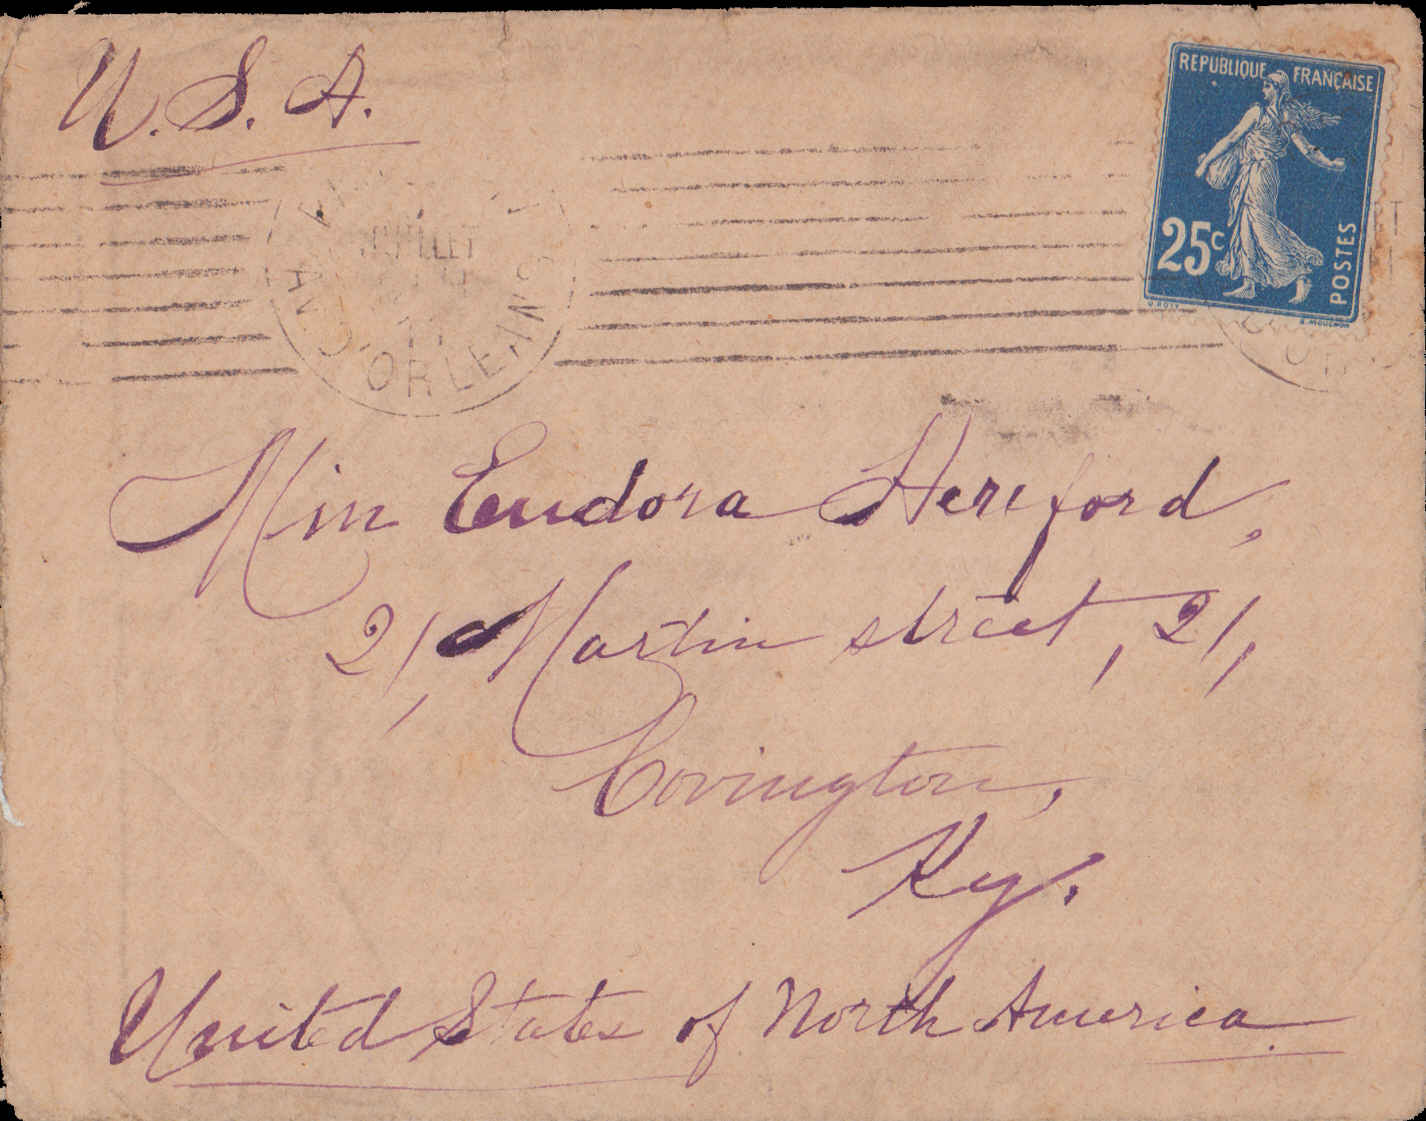 U. S. A.
REPUBLIQUE FRANÇAISE
25c
POSTES
JUILLET
AV. D'ORLEANS
Miss Eudora Hereford,
21, Martin street, 21,
Covington,
Ky.
United States of North America.